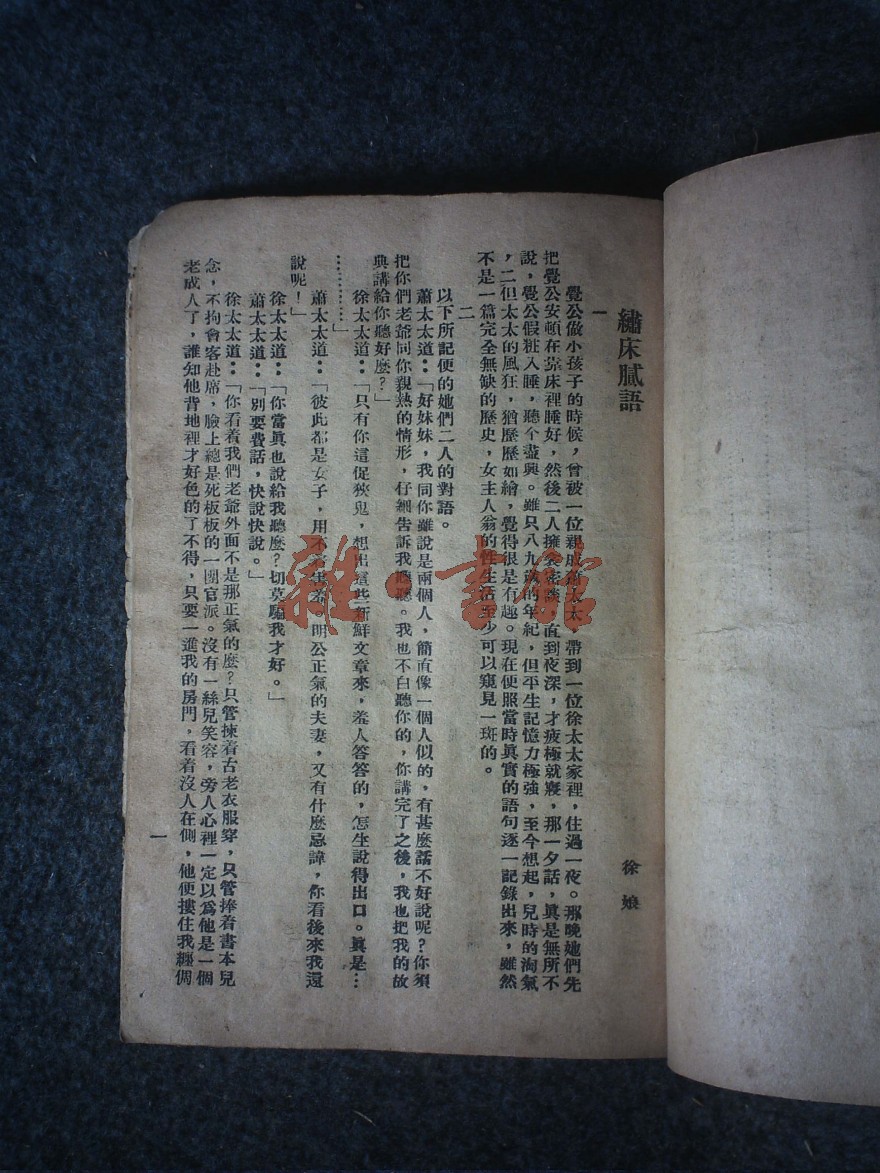 繡床膩語
徐娘
一
覺公做小孩子的時候，曾被一位親戚蕭太太，帶到一位徐太太家裡，住過一夜。那晚她們先
把覺公安頓在靠床裡睡好，然後二人擁衾密談，直到夜深，才疲極就寢，那一夕話，眞是無所不
說，覺公假粧入睡，聽个盡興。雖只八九歲的年紀，但平生記憶力極強，至今想起，兒時的淘氣
，二位太太的風狂，猶歷歷如繪，覺得很是有趣。現在便照當時眞實的語句逐一記錄出來，雖然
不是一篇完全無缺的歷史，女主人翁的性生活至少可以窺見一斑的。
二
以下所記便的她們二人的對語。
蕭太太道：「好妹妹，我同你雖說是兩個人，簡直像一個人似的，有甚麼話不好說呢？你須
把你們老爺同你親熱的情形，仔細告訴我聽聽。我也不白聽你的，你講完了之後，我也把我的故
典講給你聽好麼？」
徐太太道：「只有你這促狹鬼，想出這些新鮮文章來，羞人答答的，怎生說得出口。眞是…
…………」
蕭太太道：「彼此都是女子，用不着害羞。明公正氣的夫妻，又有什麼忌諱，你看後來我還
說呢！」
徐太太道：「你當眞也說給我聽麼？切莫騙我才好。」
蕭太太道：「別要費話，快說快說。」
徐太太道：「你看着我們老爺外面不是那正氣的麼？只管揀着古老衣服穿，只管捧着書本兒
念，不拘會客赴席，臉上總是死板板的一團官派。沒有一絲兒笑容，旁人心裡一定以爲他是一個
老成人了，誰知他背地裡才好色的了不得，只要一進我的房門，看着沒人在側，他便摟住我纏倜
一
雜·書館